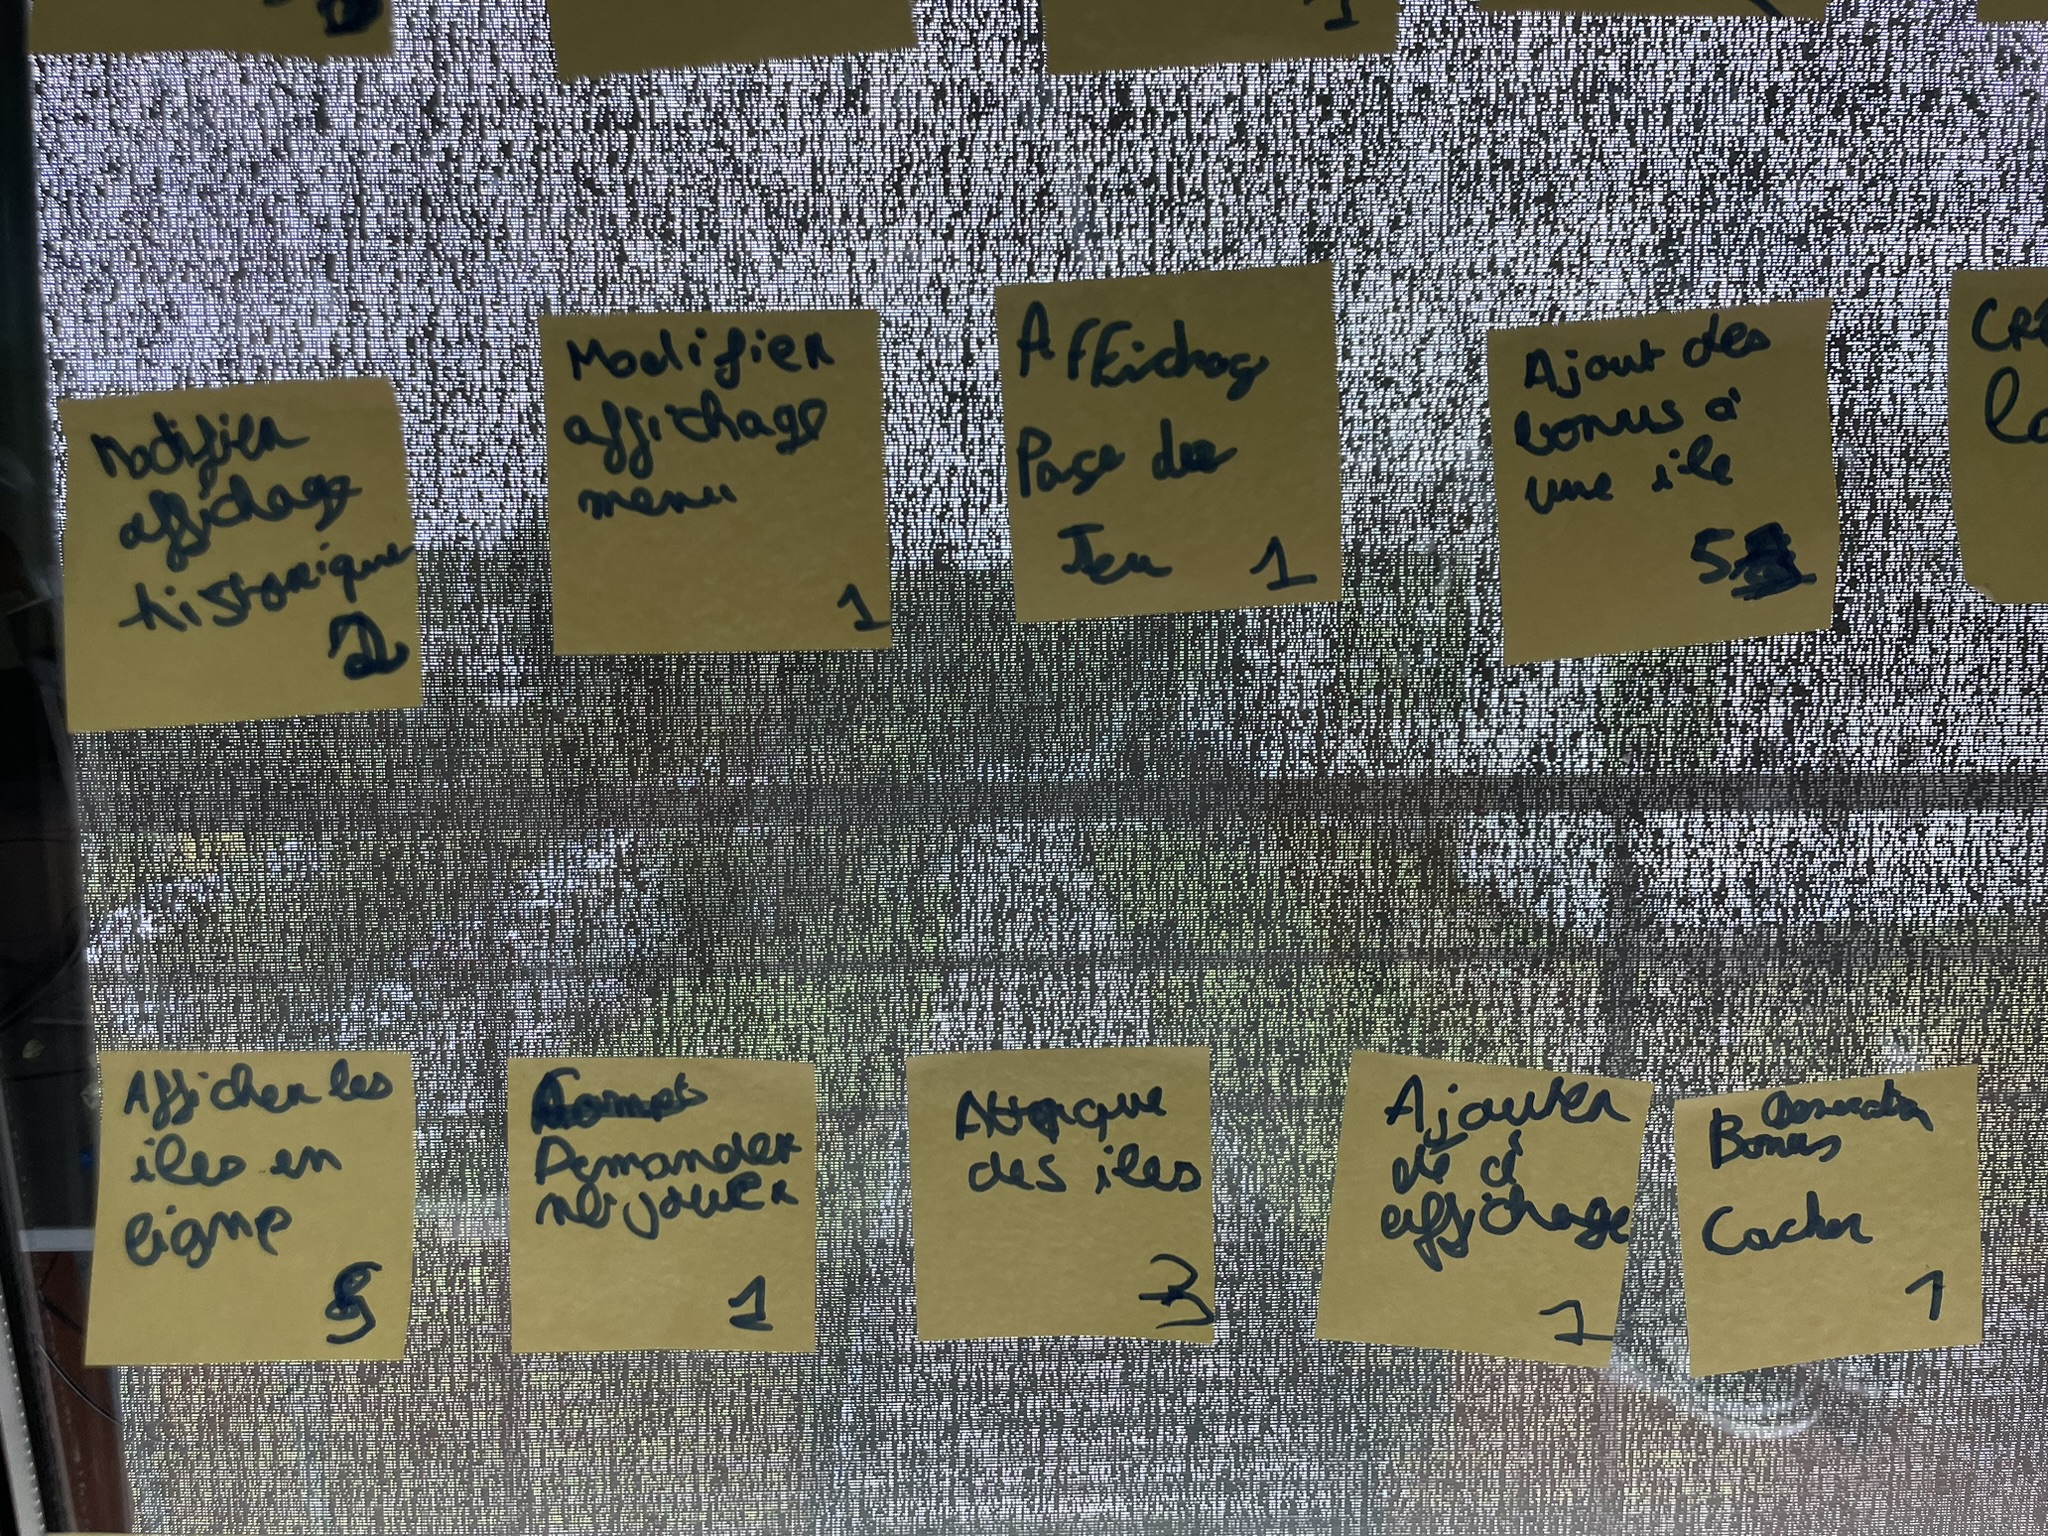 1
Modifier
affichage
historique
2
Modifier
affichage
menu
1
Affichage
Page des
Jeu 1
Ajout des
bonus à
une ile
5
Afficher les
iles en
ligne
5
Demander
nb joueur
1
Attaque
des iles
3
Ajouter
dé à
affichage
1
Bonus
Cacher
1